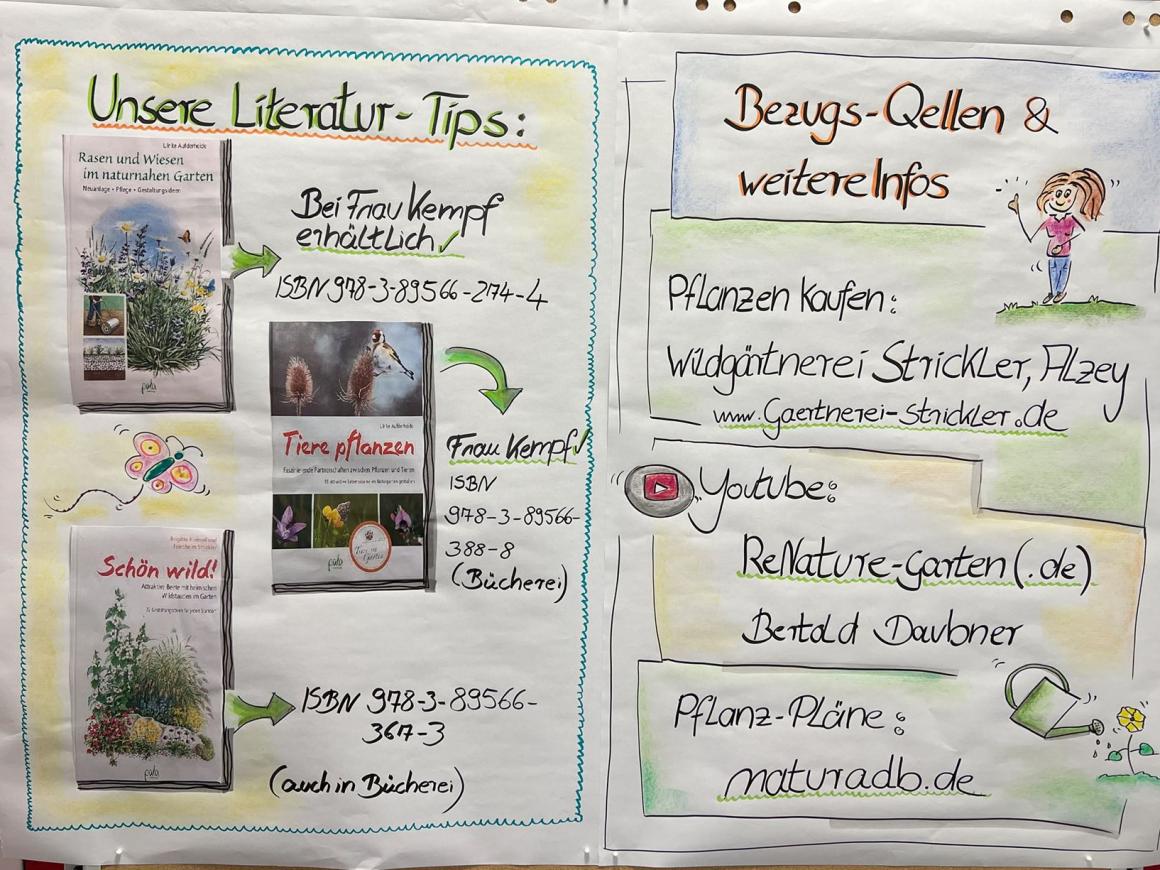 Unsere Literatur-Tips:
Ulrike Aufderheide
Rasen und Wiesen
im naturnahen Garten
Neuanlage • Pflege • Gestaltungsideen
pala
Bei Frau Kempf
erhältlich ✓
ISBN 978-3-89566-274-4
Ulrike Aufderheide
Tiere pflanzen
Faszinierende Partnerschaften zwischen Pflanzen und Tieren
pala
Tiere im
Garten
Frau Kempf ✓
ISBN
978-3-89566-
388-8
(Bücherei)
Schön wild!
Attraktive Beete mit heimischen
Wildstauden im Garten
pala
ISBN 978-3-89566-
367-3
(auch in Bücherei)
Bezugs-Qellen &
weitere Infos
Pflanzen kaufen:
Wildgärtnerei Strickler, Alzey
www.Gaertnerei-Strickler.de
Youtube:
ReNature-Garten(.de)
Bertold Daubner
Pflanz-Pläne:
naturadb.de